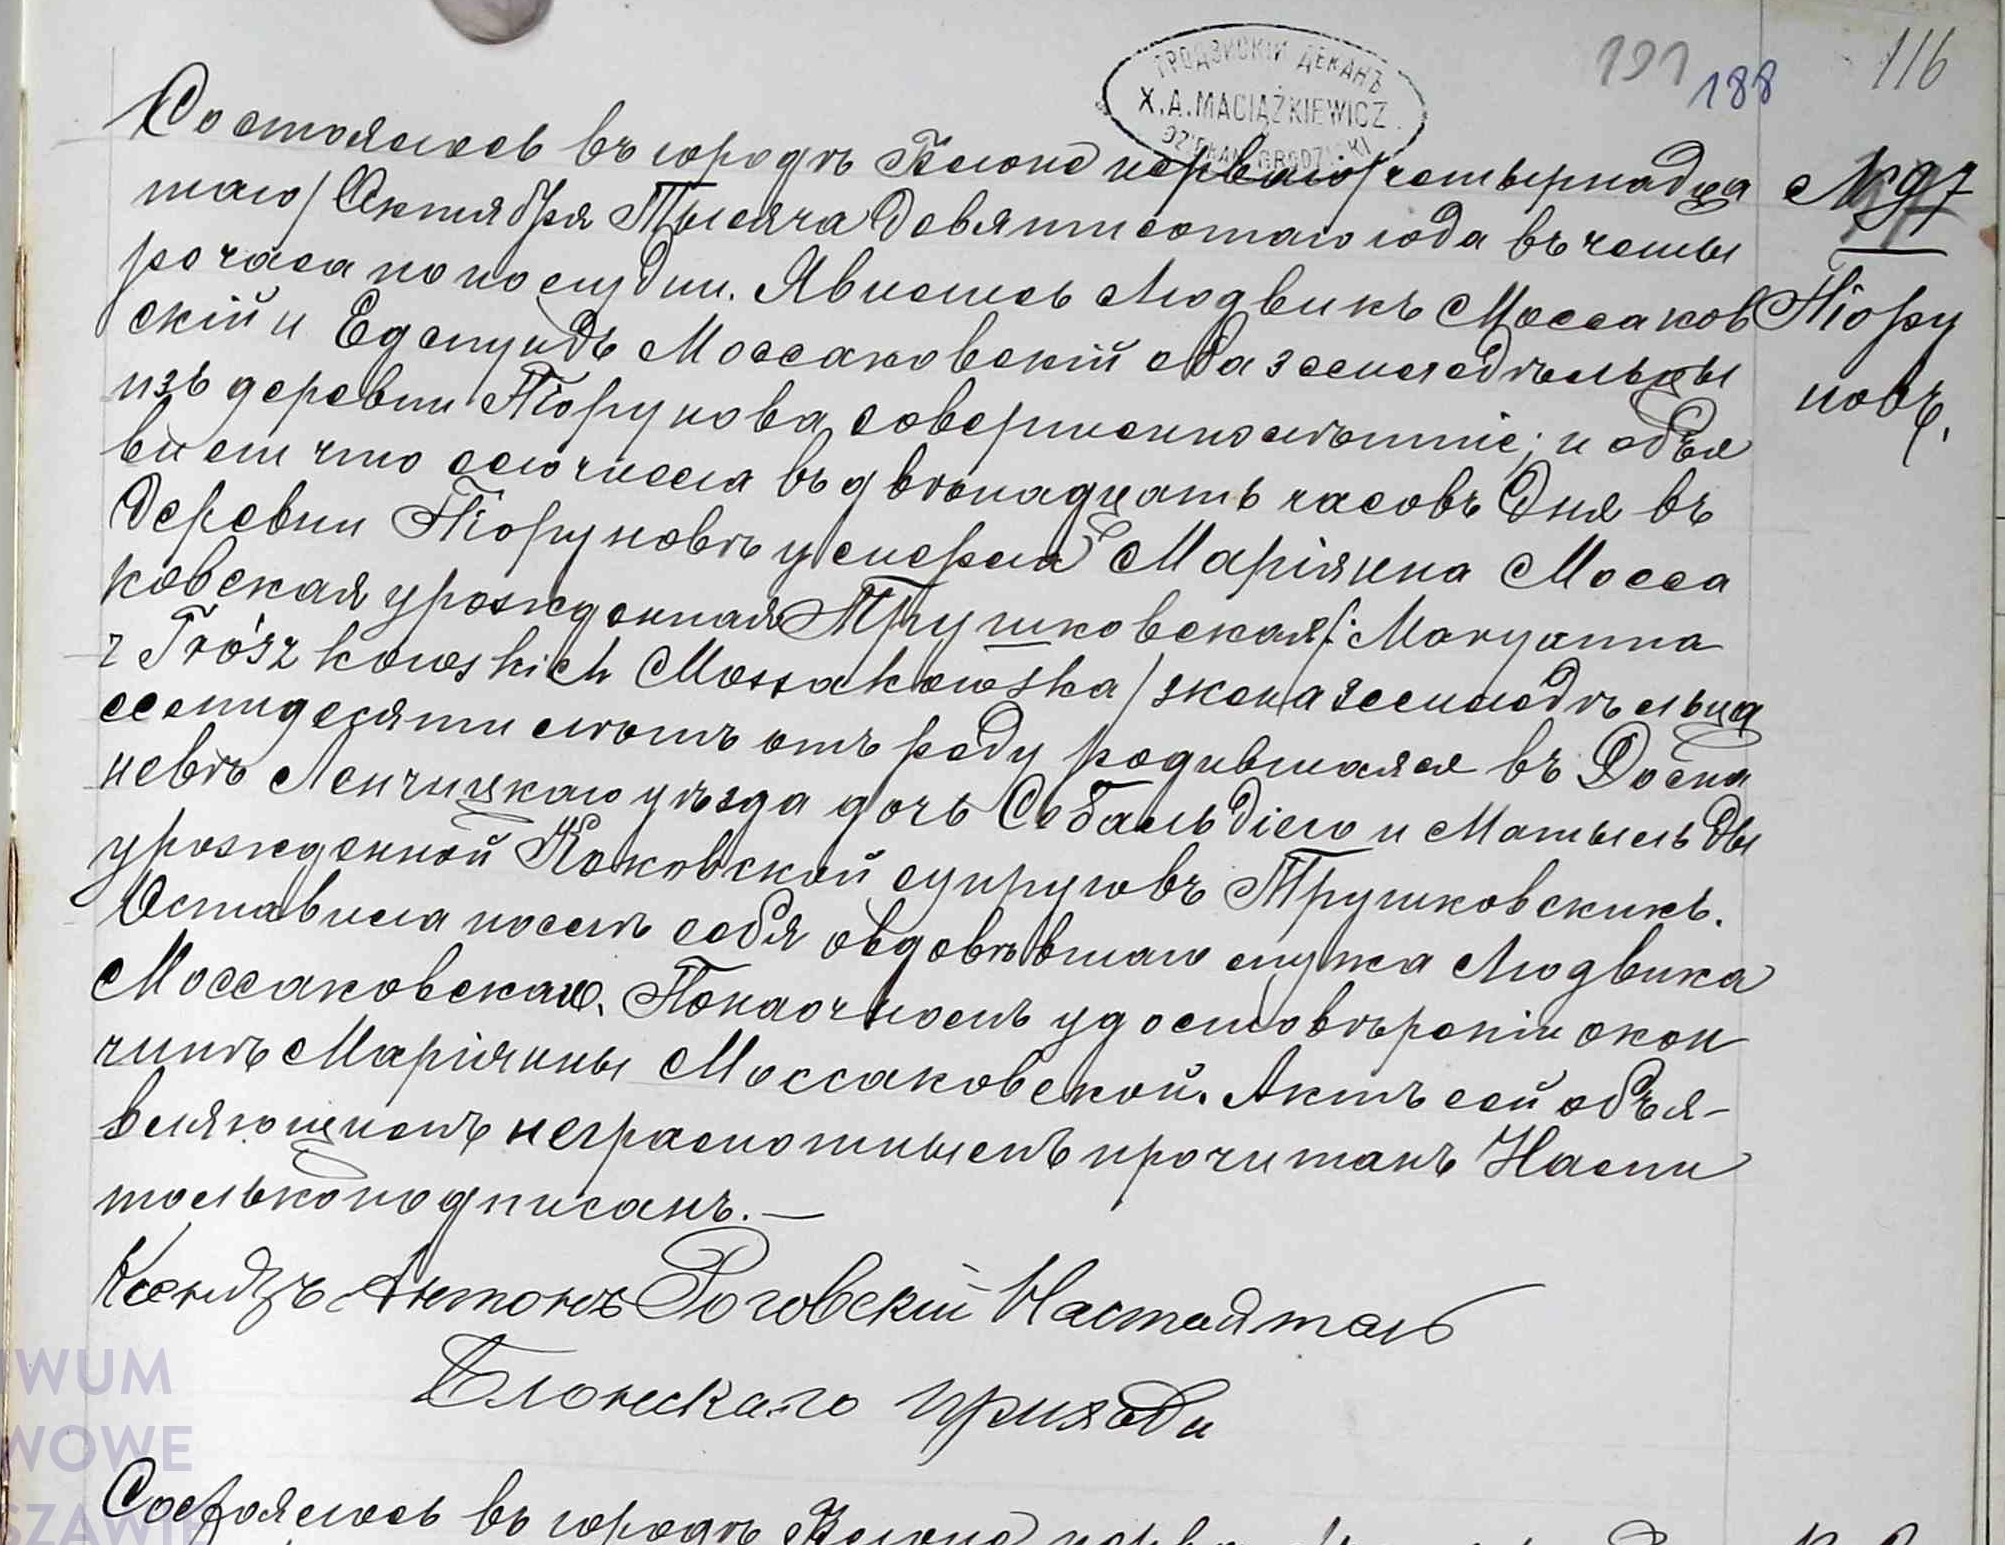 ГРОДЗИСКІЙ ДЕКАНЪ
X. A. MACIĄŻKIEWICZ
DZIEKAN GRODZISKI
191 188 116
Состоялось въ городѣ Блоне перваго/четырнадца
таго/ Октября Тысяча Девятисотаго года въ четы
ре часа по полудни. Явились Людвикъ Моссаков
скій и Едмундъ Моссаковскій оба земледѣльцы
изъ деревни Піорунова совершеннолѣтніе; и объя
вили что сего числа въ двѣнадцать часовъ Дня въ
Деревни Піоруновѣ умерла Маріянна Мосса
ковская урожденная Трушковская /: Maryanna
z Trószkowskich Mossakowska/ жена земледѣльца
семидесяти лѣтъ отъ роду родившаяся въ
невѣ Ленчицкаго уѣзда дочь и Матыльды
урожденной Коковской супруговъ Трушковскихъ.
Оставила послѣ себя овдовѣвшаго мужа Людвика
Моссаковскаго. По наочномъ удостовѣреніи о кон
чинѣ Маріянны Моссаковской. Актъ сей объя-
вляющимъ неграмотнымъ прочитанъ Нами
только подписанъ. —
Ксендзъ Антонъ Роговскій Настоятель
Блонскаго прихода
№ 97
Піору
новъ.
Состоялось въ городѣ Блоне
WUM
WOWE
SZAWIE